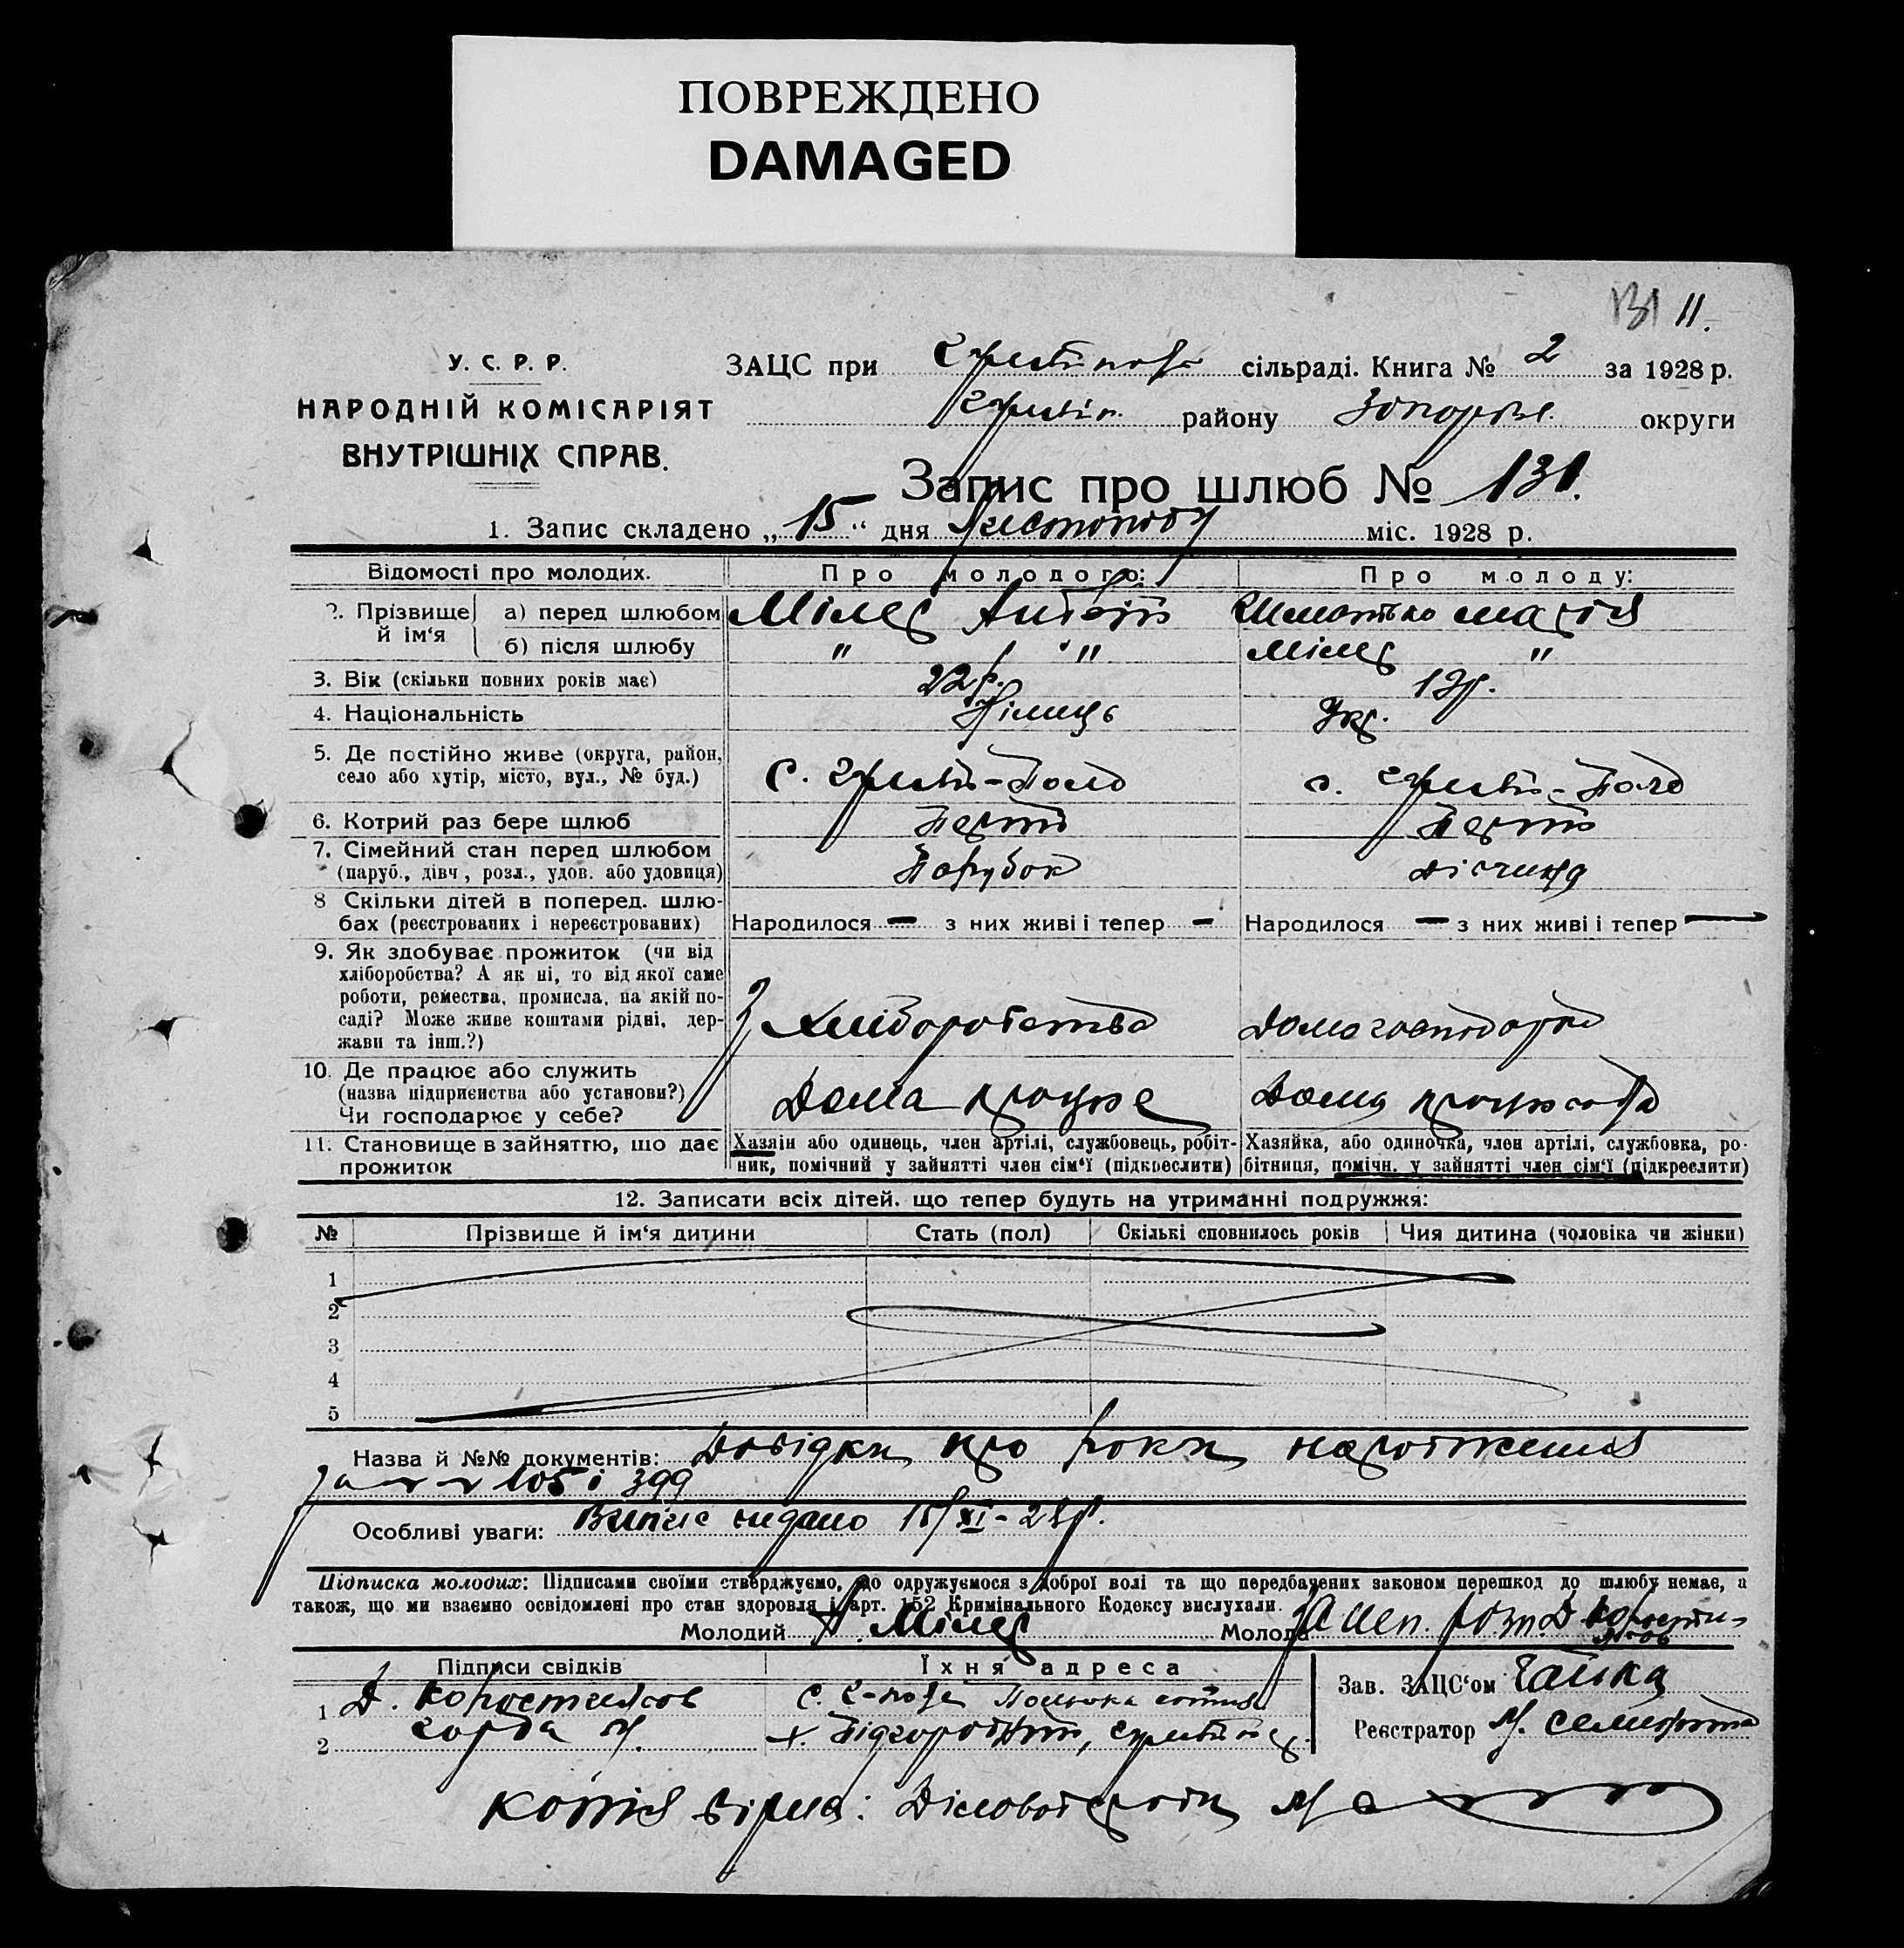 ПОВРЕЖДЕНО
DAMAGED
131 11.
У. С. Р. Р.
НАРОДНІЙ КОМІСАРІЯТ
ВНУТРІШНІХ СПРАВ.
ЗАЦС при сільраді. Книга № 2 за 1928 р.
району Запоріж. округи
Запис про шлюб № 131.
1. Запис складено „ 15 “ дня Листопаду міс. 1928 р.
Відомості про молодих. Про молодого: Про молоду:
2. Прізвище й ім‘я а) перед шлюбом Мілес Марія
б) після шлюбу " " Мілес "
3. Вік (скільки повних років має) 22 р.
4. Національність Німець Укр.
5. Де постійно живе (округа, район,
село або хутір, місто, вул., № буд.) с. с.
6. Котрий раз бере шлюб
7. Сімейний стан перед шлюбом
(паруб., дівч., розл., удов. або удовиця) Парубок Дівчина
8 Скільки дітей в поперед. шлю-
бах (реєстрованих і нереєстрованих) Народилося — з них живі і тепер — Народилося — з них живі і тепер —
9. Як здобуває прожиток (чи від
хліборобства? А як ні, то від якої саме
роботи, ремества, промисла, на якій по-
саді? Може живе коштами рідні, дер-
жави та інш.?) З Хліборобства
10. Де працює або служить
(назва підприємства або установи?)
Чи господарює у себе? Дома працює Дома
11. Становище в зайняттю, що дає
прожиток
Хазяїн або одинець, член артілі, службовець, робіт-
ник, помічний у зайнятті член сім‘ї (підкреслити)
Хазяйка, або одиночка, член артілі, службовка, ро-
бітниця, помічн. у зайнятті член сім‘ї (підкреслити)
12. Записати всіх дітей, що тепер будуть на утриманні подружжя:
№ Прізвище й ім‘я дитини Стать (пол) Скількі сповнилось років Чия дитина (чоловіка чи жінки)
1
2
3
4
5
Назва й №№ документів: Довідки про роки народження
за 105 і 399
Особливі уваги: Випис видано 15/XI-28р.
Підписка молодих: Підписами своїми стверджуємо, що одружуємося з доброї волі та що передбачених законом перешкод до шлюбу немає, а
також, що ми взаємно освідомлені про стан здоровля і арт. 152 Кримінального Кодексу вислухали.
Молодий А. Мілес Молода
Підписи свідків Їхня адреса
1 Д. с.
2 Горба х.
Зав. ЗАЦС‘ом Чайка
Реєстратор
Копія вірна: Діловод